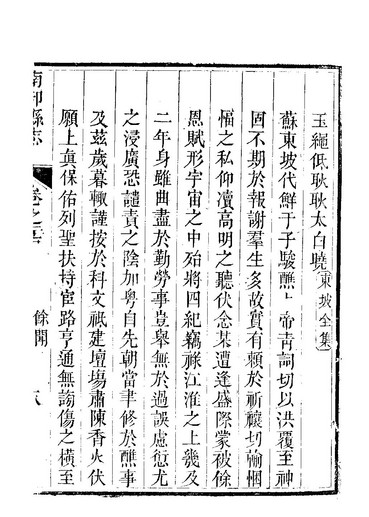 玉繩低耿耿太白曉東坡全集
蘇東坡代鮮于子駿醮上帝青詞切以洪覆至神
固不期於報謝羣生多故實有賴於祈禳切輸悃
愊之私仰瀆高明之聽伏念某遭逢盛際蒙被餘
恩賦形宇宙之中殆將四紀竊祿江淮之上幾及
二年身雖曲盡於勤勞事豈舉無於過誤慮愆尤
之浸廣恐譴責之陰加粤自先朝當聿修於醮事
及茲歲暮輒謹按於科文祇建壇場肅陳香火伏
願上眞保佑列聖扶持宦路亨通無謫傷之橫至
南部縣志
卷之
餘聞
八